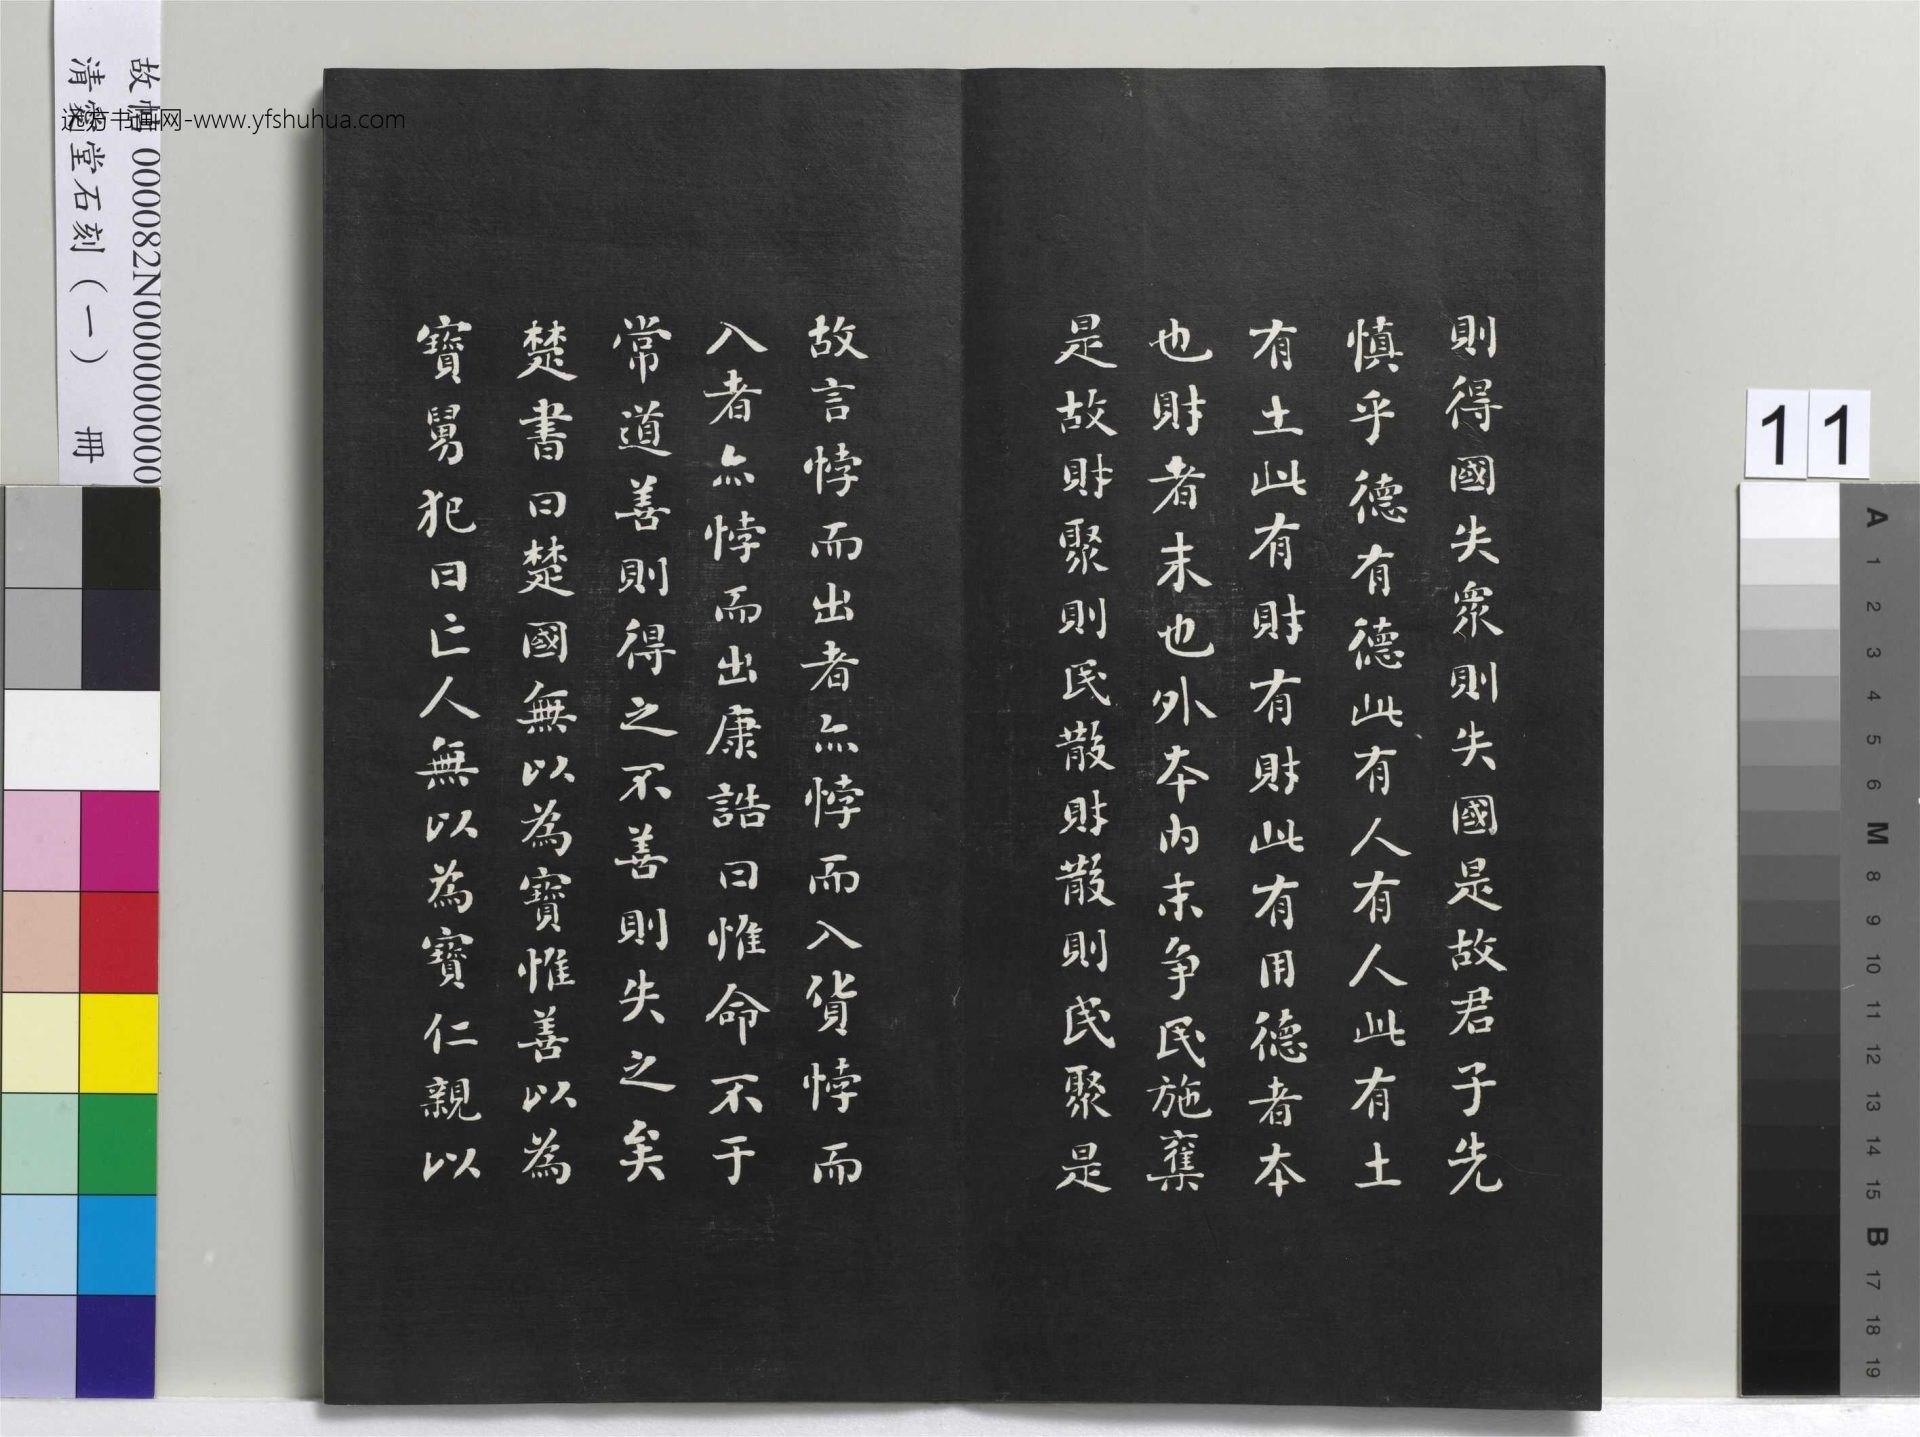 則得國失衆則失國是故君子先
慎乎德有德此有人有人此有土
有土此有財有財此有用德者本
也財者末也外本內末争民施奪
是故財聚則民散財散則民聚是
故言悖而出者亦悖而入貨悖而
入者亦悖而出康誥曰惟命不于
常道善則得之不善則失之矣
楚書曰楚國無以為寶惟善以為
寶舅犯曰亡人無以為寶仁親以
故帖 000082N000000000
清 堂石刻（一） 冊
远 书画网-www.yfshuhua.com
11
A 1 2 3 4 5 6 M 8 9 10 11 12 13 14 15 B 17 18 19